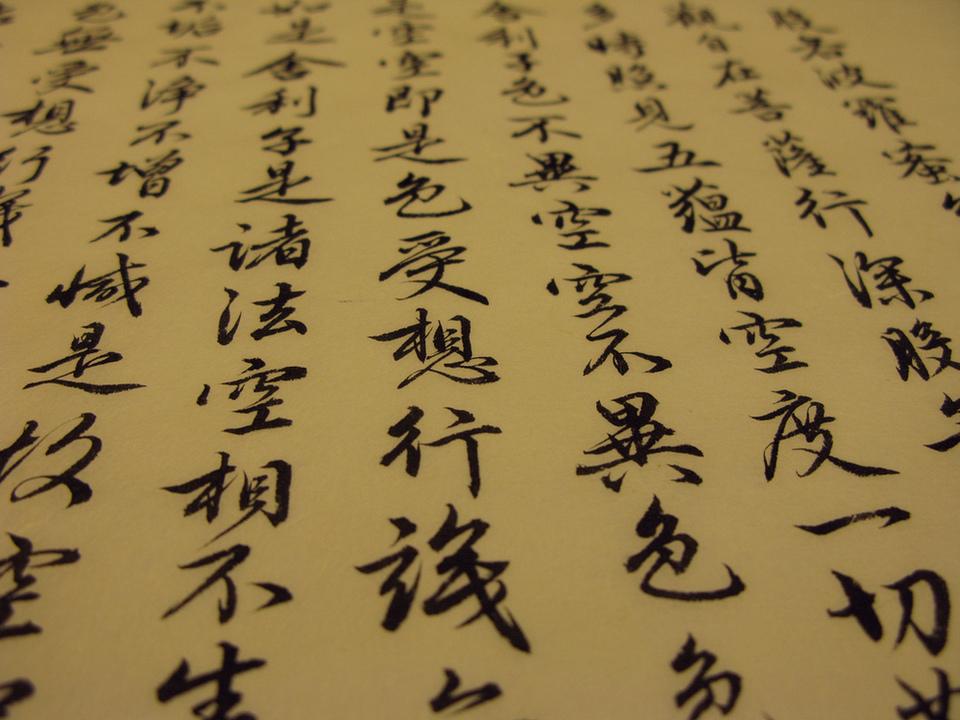 般若波羅蜜
觀自在菩薩行深般
多時照見五蘊皆空度一切
舍利子色不異空空不異色色
是空空即是色受想行識亦
如是舍利子是諸法空相不生
不垢不淨不增不減是故空
色無受想行識